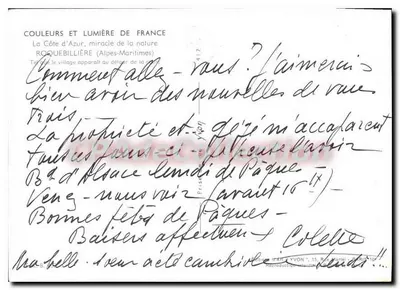 COULEURS ET LUMIÈRE DE FRANCE
La Côte d'Azur, miracle de la nature
ROQUEBILLIÈRE (Alpes-Maritimes)
Tel que le village apparaît au
Comment allez-vous? J'aimerais
bien avoir des nouvelles de vous
trois.
La propriété et m'accaparent
tous ces jours ci
Bd d'Alsace lundi de Pâques
Venez-nous voir (avant 16
Bonnes fêtes de Pâques -
Baisers affectueux Colette
Ma belle-sœur a été cambriolée lundi!!